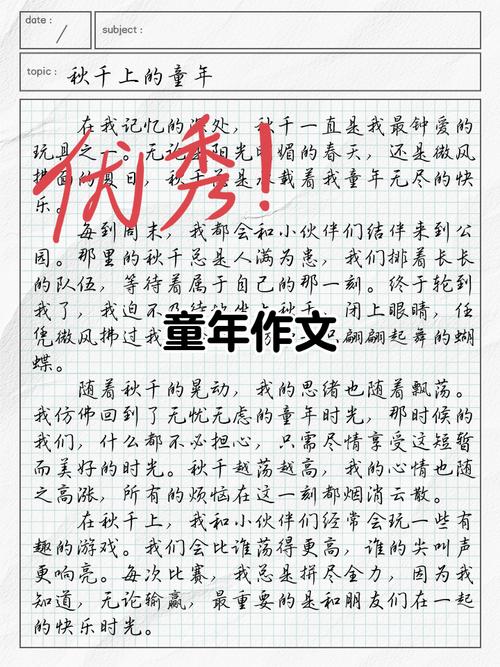 date :
subject :
topic : 秋千上的童年
在我记忆的深处，秋千一直是我最钟爱的
玩具之一。无论是阳光明媚的春天，还是微风
拂面的夏日，秋千总是承载着我童年无尽的快
乐。
优秀!
每到周末，我都会和小伙伴们结伴来到公
园。那里的秋千总是人满为患，我们排着长长
的队伍，等待着属于自己的那一刻。终于轮到
我了，我迫不及待地坐上秋千，闭上眼睛，任
凭微风拂过我 只翩翩起舞的蝴
童年作文
蝶。
随着秋千的晃动，我的思绪也随着飘荡。
我仿佛回到了无忧无虑的童年时光，那时候的
我们，什么都不必担心，只需尽情享受这短暂
而美好的时光。秋千越荡越高，我的心情也随
之高涨，所有的烦恼在这一刻都烟消云散。
在秋千上，我和小伙伴们经常会玩一些有
趣的游戏。我们会比谁荡得更高，谁的尖叫声
更响亮。每次比赛，我总是拼尽全力，因为我
知道，无论输赢，最重要的是和朋友们在一起
的快乐时光。